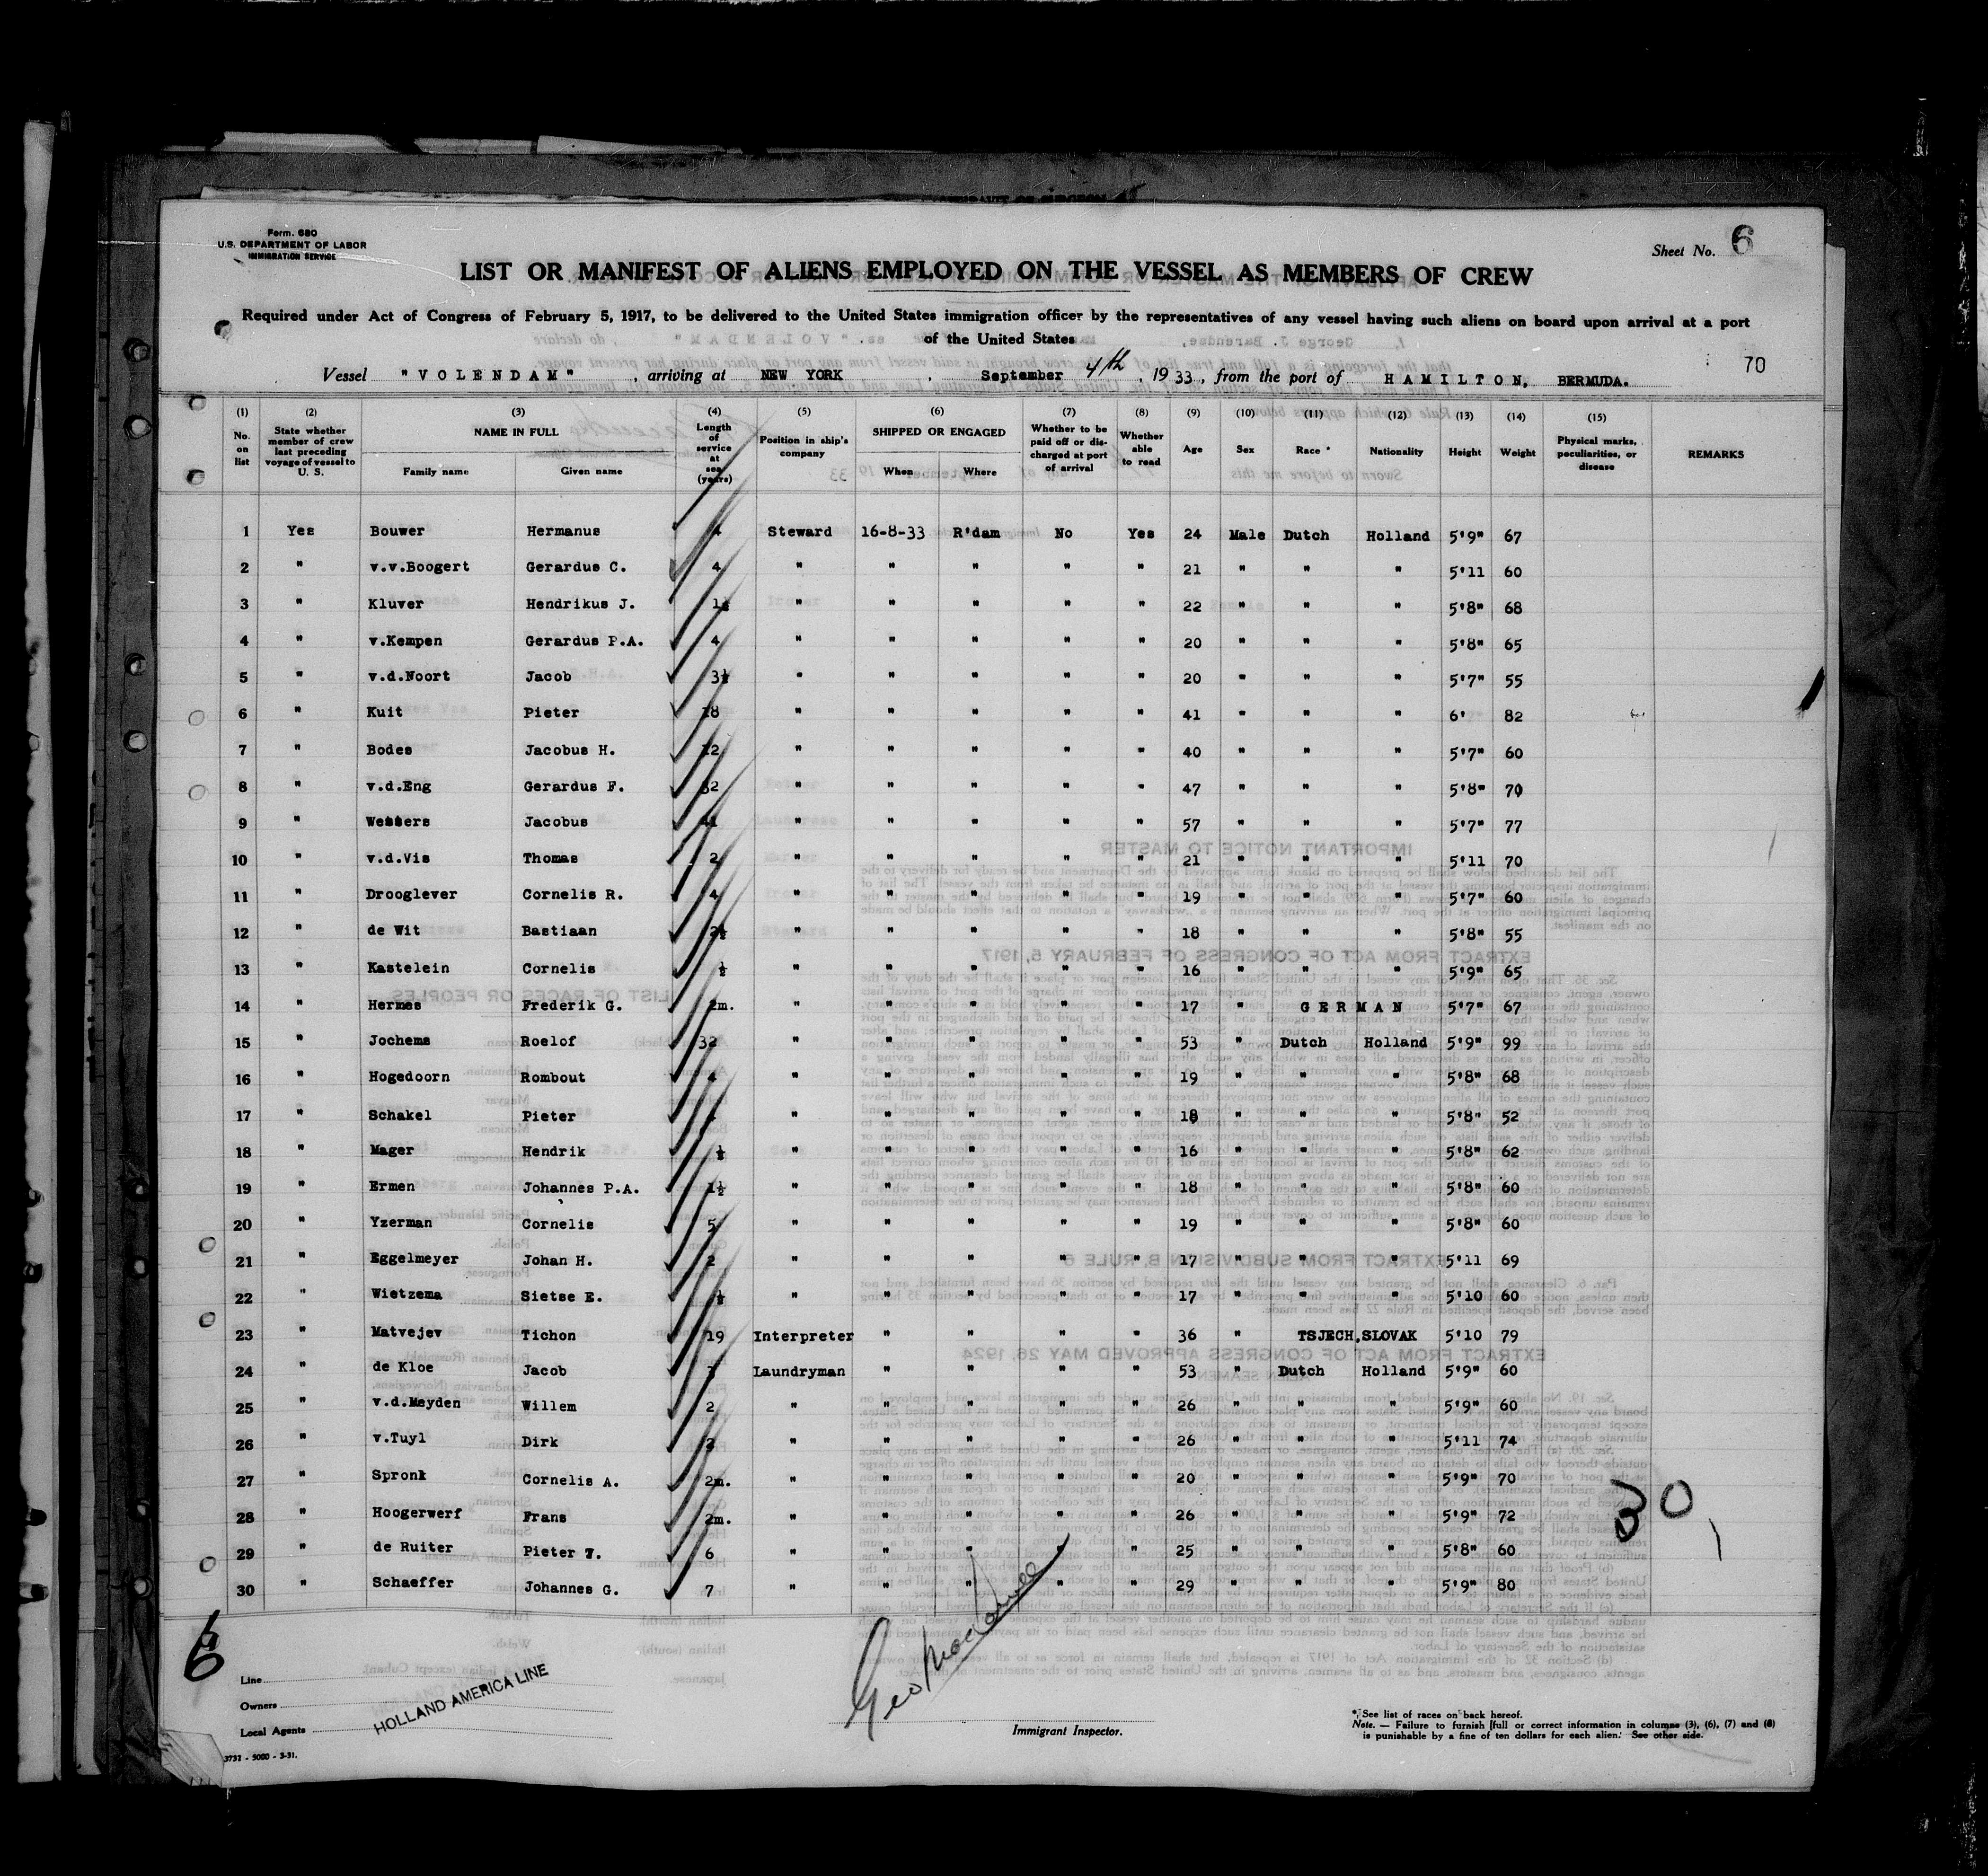 Form. 680
U.S. DEPARTMENT OF LABOR
IMMIGRATION SERVICE
Sheet No. 6
LIST OR MANIFEST OF ALIENS EMPLOYED ON THE VESSEL AS MEMBERS OF CREW
Required under Act of Congress of February 5, 1917, to be delivered to the United States immigration officer by the representatives of any vessel having such aliens on board upon arrival at a port
of the United States
70
Vessel "VOLENDAM", arriving at NEW YORK, September 4th, 1933, from the port of HAMILTON, BERMUDA.
(1) (2) (3) (4) (5) (6) (7) (8) (9) (10) (11) (12) (13) (14) (15)
No. on list State whether member of crew last preceding voyage of vessel to U. S. NAME IN FULL Family name Given name Length of service at sea (years) Position in ship's company SHIPPED OR ENGAGED When Where Whether to be paid off or discharged at port of arrival Whether able to read Age Sex Race * Nationality Height Weight Physical marks, peculiarities, or disease REMARKS
1 Yes Bouwer Hermanus 4 Steward 16-8-33 R'dam No Yes 24 Male Dutch Holland 5'9" 67
2 " v.v.Boogert Gerardus C. 4 " " " " " 21 " " " 5'11 60
3 " Kluver Hendrikus J. 1½ " " " " " 22 " " " 5'8" 68
4 " v.Kempen Gerardus P.A. 4 " " " " " 20 " " " 5'8" 65
5 " v.d.Noort Jacob 3½ " " " " " 20 " " " 5'7" 55
6 " Kuit Pieter 18 " " " " " 41 " " " 6' 82
7 " Bodes Jacobus H. 22 " " " " " 40 " " " 5'7" 60
8 " v.d.Eng Gerardus F. 32 " " " " " 47 " " " 5'8" 70
9 " Jacobus 41 " " " " " 57 " " " 5'7" 77
10 " v.d.Vis Thomas 2 " " " " " 21 " " " 5'11 70
11 " Drooglever Cornelis R. 4 " " " " " 19 " " " 5'7" 60
12 " de Wit Bastiaan 2½ " " " " " 18 " " " 5'8" 55
13 " Kastelein Cornelis ½ " " " " " 16 " " " 5'9" 65
14 " Hermes Frederik G. 2m. " " " " " 17 " GERMAN 5'7" 67
15 " Jochems Roelof 32 " " " " " 53 " Dutch Holland 5'9" 99
16 " Hogedoorn Rombout 4 " " " " " 19 " " " 5'8" 68
17 " Schakel Pieter " " " " " 18 " " " 5'8" 52
18 " Mager Hendrik ½ " " " " " 16 " " " 5'8" 62
19 " Ermen Johannes P.A. 1½ " " " " " 18 " " " 5'8" 60
20 " Yzerman Cornelis 5 " " " " " 19 " " " 5'8" 60
21 " Eggelmeyer Johan H. 2 " " " " " 17 " " " 5'11 69
22 " Wietzema Sietse E. ½ " " " " " 17 " " " 5'10 60
23 " Matvejev Tichon 19 Interpreter " " " " 36 " TSJECH.SLOVAK 5'10 79
24 " de Kloe Jacob Laundryman " " " " 53 " Dutch Holland 5'9" 60
25 " v.d.Meyden Willem 2 " " " " " 26 " " " 5'9" 60
26 " v.Tuyl Dirk 2 " " " " " 26 " " " 5'11 74
27 " Spronk Cornelis A. 2m. " " " " " 20 " " " 5'9" 70
28 " Hoogerwerf Frans 2m. " " " " " 26 " " " 5'9" 72
29 " de Ruiter Pieter T. 6 " " " " " 25 " " " 5'8" 60
30 " Schaeffer Johannes G. 7 " " " " " 29 " " " 5'9" 80
30
6
Line
Owners
Local Agents
HOLLAND AMERICA LINE
Immigrant Inspector.
* See list of races on back hereof.
Note. — Failure to furnish full or correct information in columns (3), (6), (7) and (8)
is punishable by a fine of ten dollars for each alien. See other side.
3737 - 5000 - 3-31.